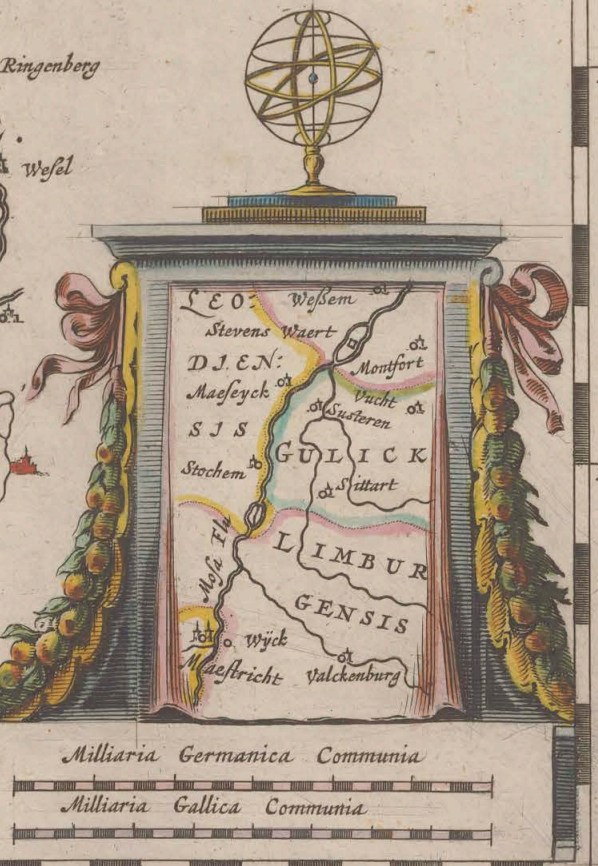 Ringenberg
Wesel
LEO: Weßem
Stevens Waert
DIEN: Montfort
Maeseyck Vucht
Susteren
SIS
GULICK
Stochem Sittart
Mosa Flu
LIMBUR
GENSIS
Wÿck
Maestricht Valckenburg
Milliaria Germanica Communia
Milliaria Gallica Communia